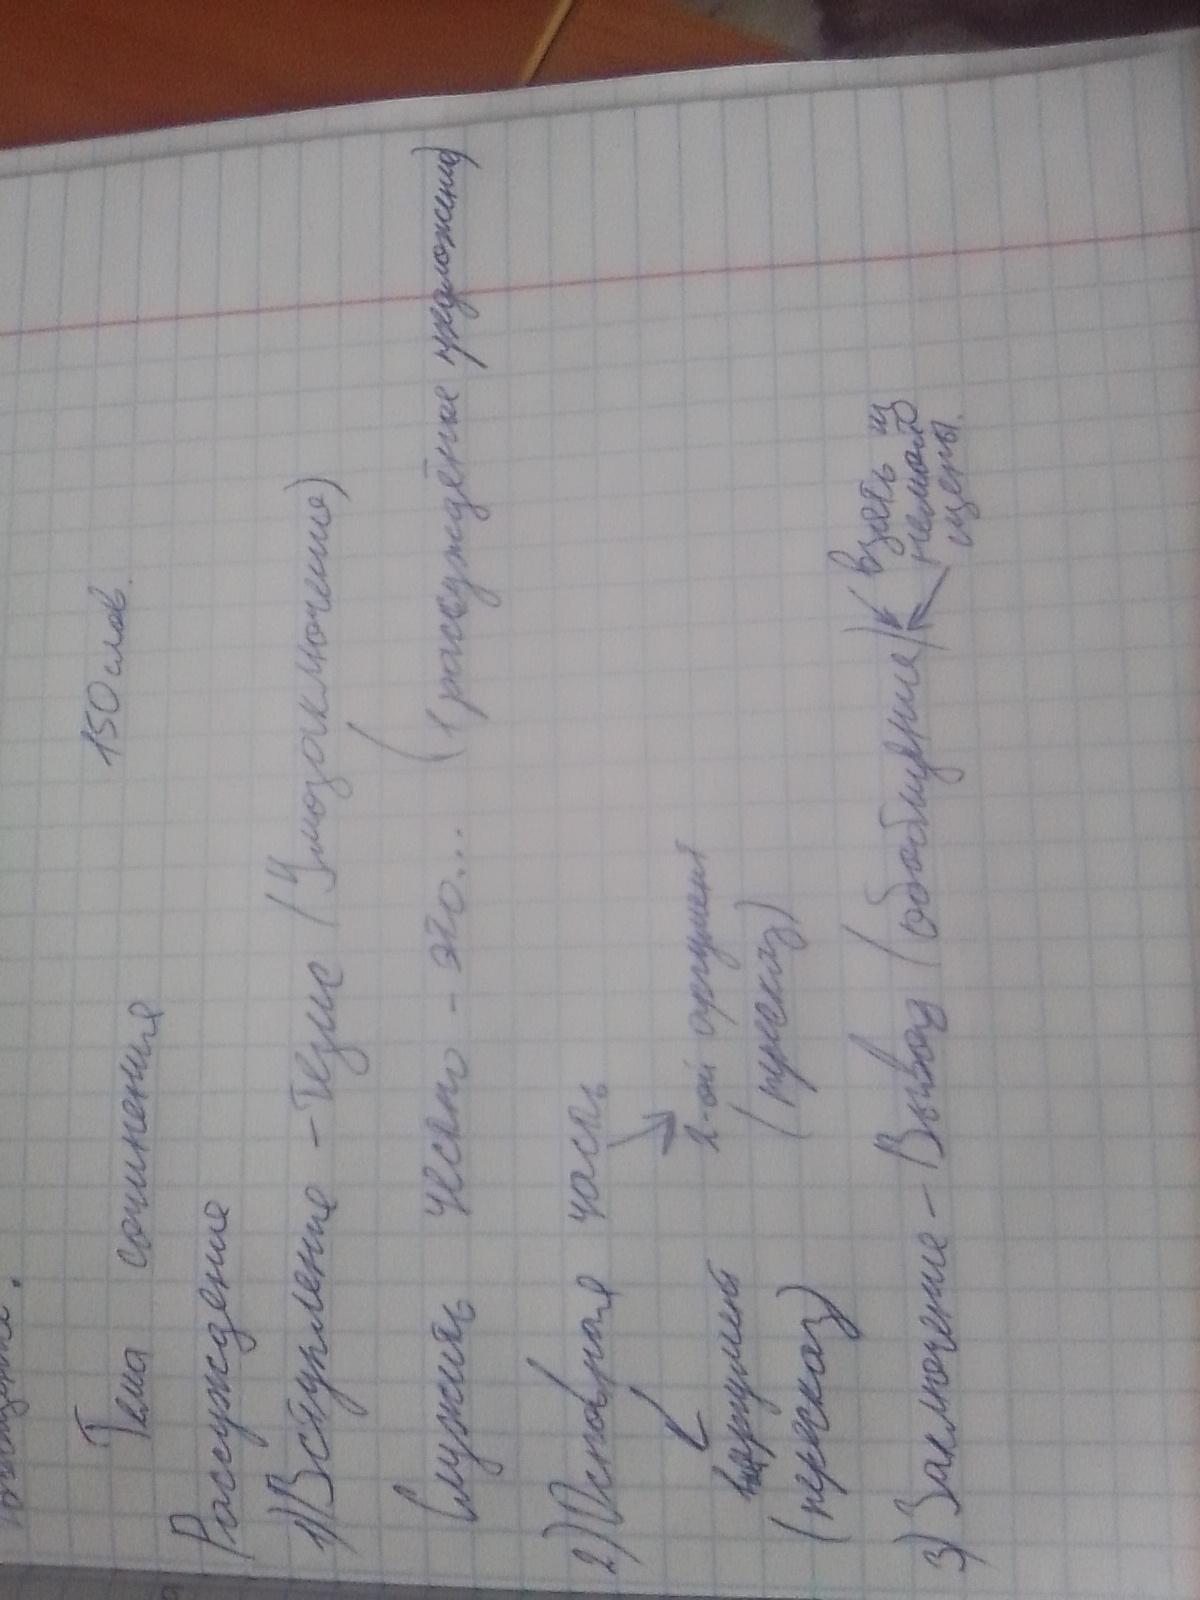 Тема сочинения 150 слов.
Рассуждение
1) Вступление - Тезис (Умозаключение)
Служить честно - это... (рассуждение предложения)
2) Основная часть
1 аргумент 2-ой аргумент
(пересказ) (пересказ)
3) Заключение - Вывод (обобщение) взять из
немой
сцены.